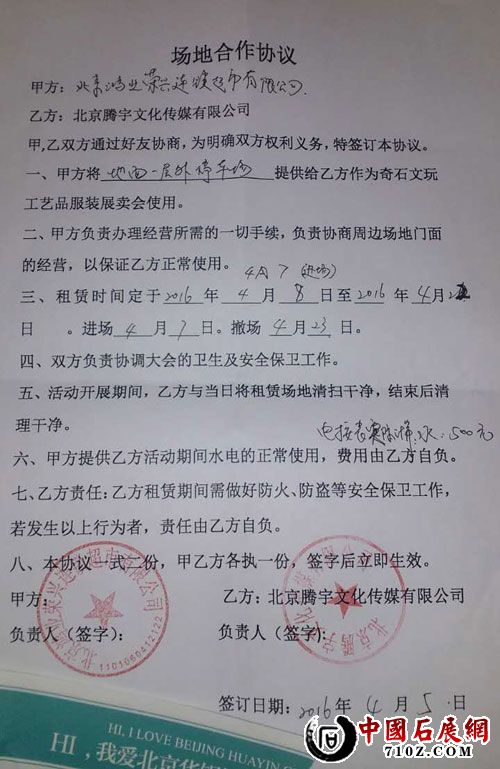 场地合作协议
甲方：北京鸿业荣兴连锁超市有限公司
乙方：北京腾宇文化传媒有限公司
甲,乙双方通过好友协商，为明确双方权利义务，特签订本协议。
一、甲方将 地面一层外停车场 提供给乙方作为奇石文玩
工艺品服装展卖会使用。
二、甲方负责办理经营所需的一切手续，负责协商周边场地门面
的经营，以保证乙方正常使用。
4月7（进场）
三、租赁时间定于2016 年 4 月 8 日至2016 年 4月
日 。进场 4 月 7 日。撤场 4 月 23 日。
四、双方负责协调大会的卫生及安全保卫工作。
五、活动开展期间，乙方与当日将租赁场地清扫干净，结束后清
理干净。
电按表 水：500元
六、甲方提供乙方活动期间水电的正常使用，费用由乙方自负。
七、乙方责任：乙方租赁期间需做好防火、防盗等安全保卫工作，
若发生以上行为者，责任由乙方自负。
八、本协议一式二份，甲乙方各执一份，签字后立即生效。
甲方： 乙方：北京腾宇文化传媒有限公司
负责人（签字）： 负责人（签字）：
1101060412122
签订日期：2016 年 4 月 5 日
HI, I LOVE BEIJING HUAYIN
HI，我爱北京华
中國石展網
710Z.COM